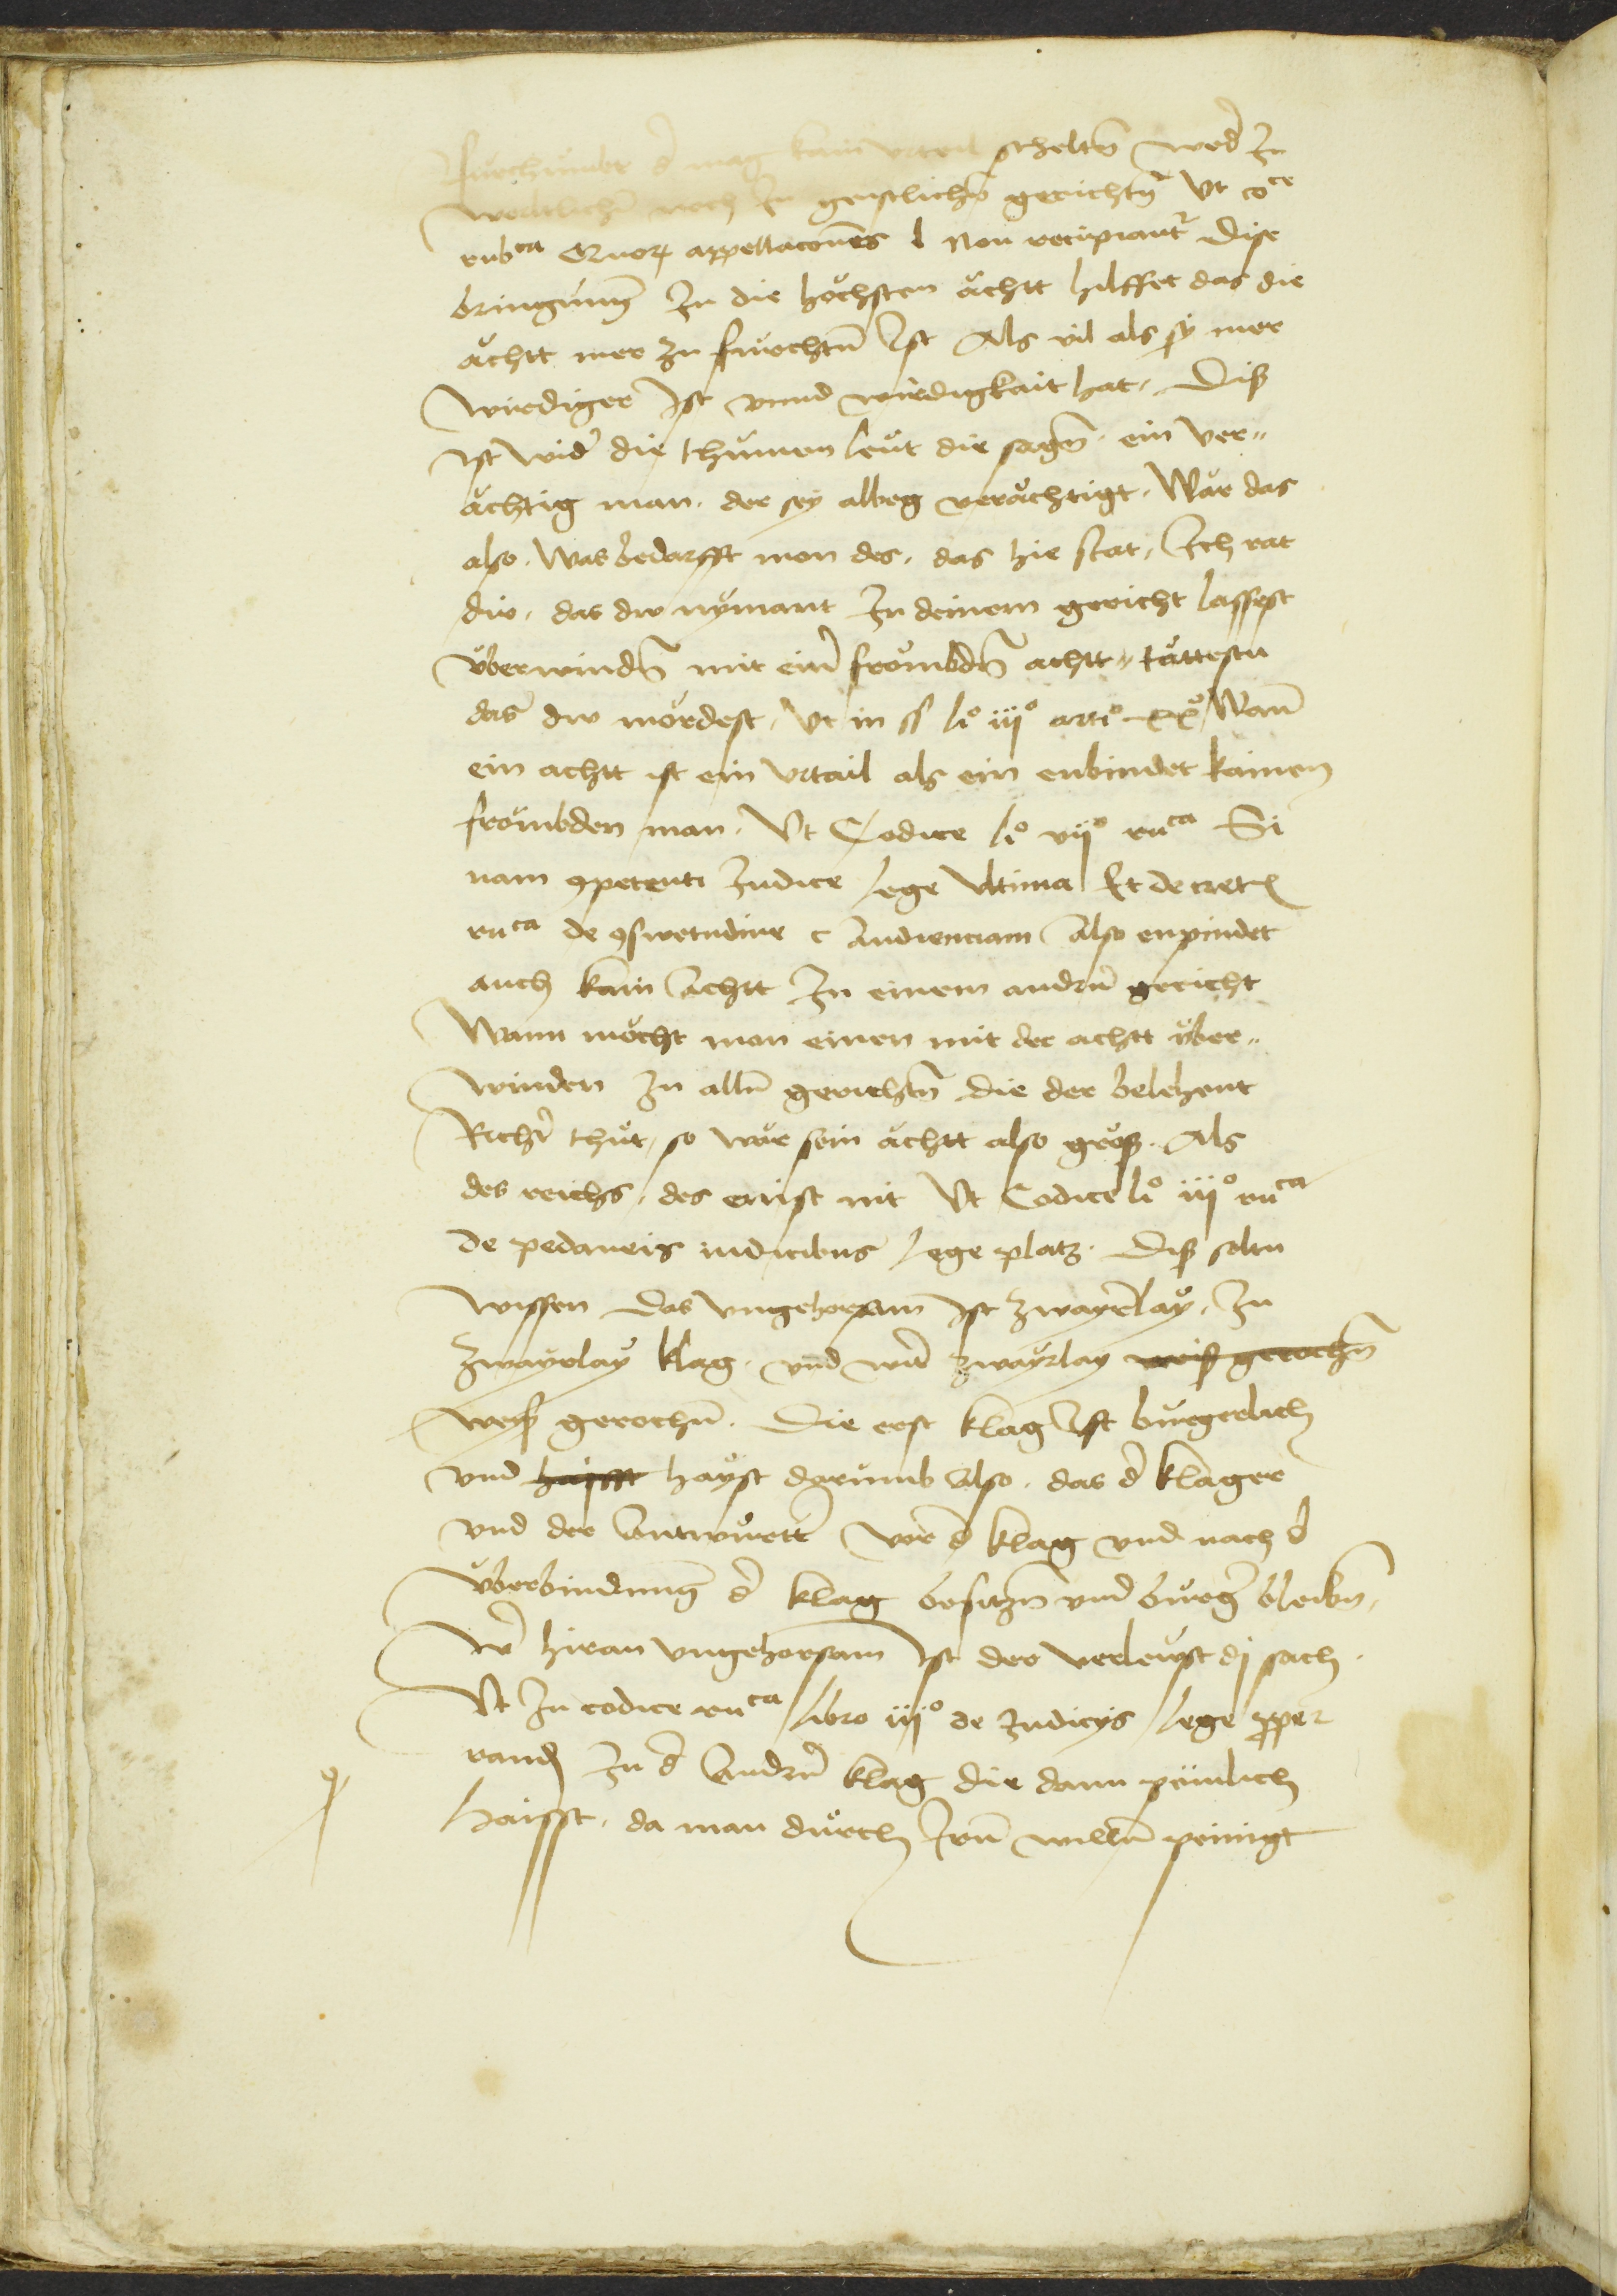 fürchumbt d mag kain vrteil scheltn wed In
werltlichn noch In geistlichn gerichtn Vt coce
rubca Quor appellacones l Non recipiant Dise
bringung In die höchsten ächtt hilffet das die
ächtt mer zu fürchtn Ist Als vil als sy mer
wirdiger Ist vnnd wirdigkait hat, Diß
ist wid die thumen leüt die sagn ein ver„
ächtig man. der sey albeg verächtigt. Wär das
also. Was bedarfft man des, das hie stat, Ich rat
dir, das dw nÿmant In deinem gericht lassest
vberwindn mit ein frömbdn achtt„ tättestu
das dw mördest, Vt in ss lio iiio artio xxo Wan
ein achtt ist ein vrtail als ein enbindet kainen
frömbden man, Vt Codice lio viio ruca Si
nam 9petenti Iudice lege vltima Et decret
ruca de 9swetudine c Audienciam Also enpindet
auch kain Achtt In einem andrn gericht
Wann möcht man einen mit der achtt vber„
winden In alln gerichtn die der belehent
Richt thüt, so wär sein ächtt also groß. Als
des reichs, des enist nit Vt Codice lio iiio ruca
de pedaneis iudicibus lege platz. Diß soltu
wissen das vngehorsam Ist zwayrlaÿ, In
zwayrlaÿ klag. vnd wirt zwaÿrlay weiß gerochn
weiß gerochn. Die erst klag Ist burgerlich
vnd haisst haÿst darumb Also. das d klager
vnd der Antwurtt vor d klag vnd nach d
vberbindung d klag besitzn vnd burg bleibn,
W hiran vngehorsam Ist der verleust dj sach.
Vt In codice ruca libro iiio de Iudicÿs lege pper
rand In d Andrn klag die dann peinlich
haisst, da man durch Irn willn peinigt